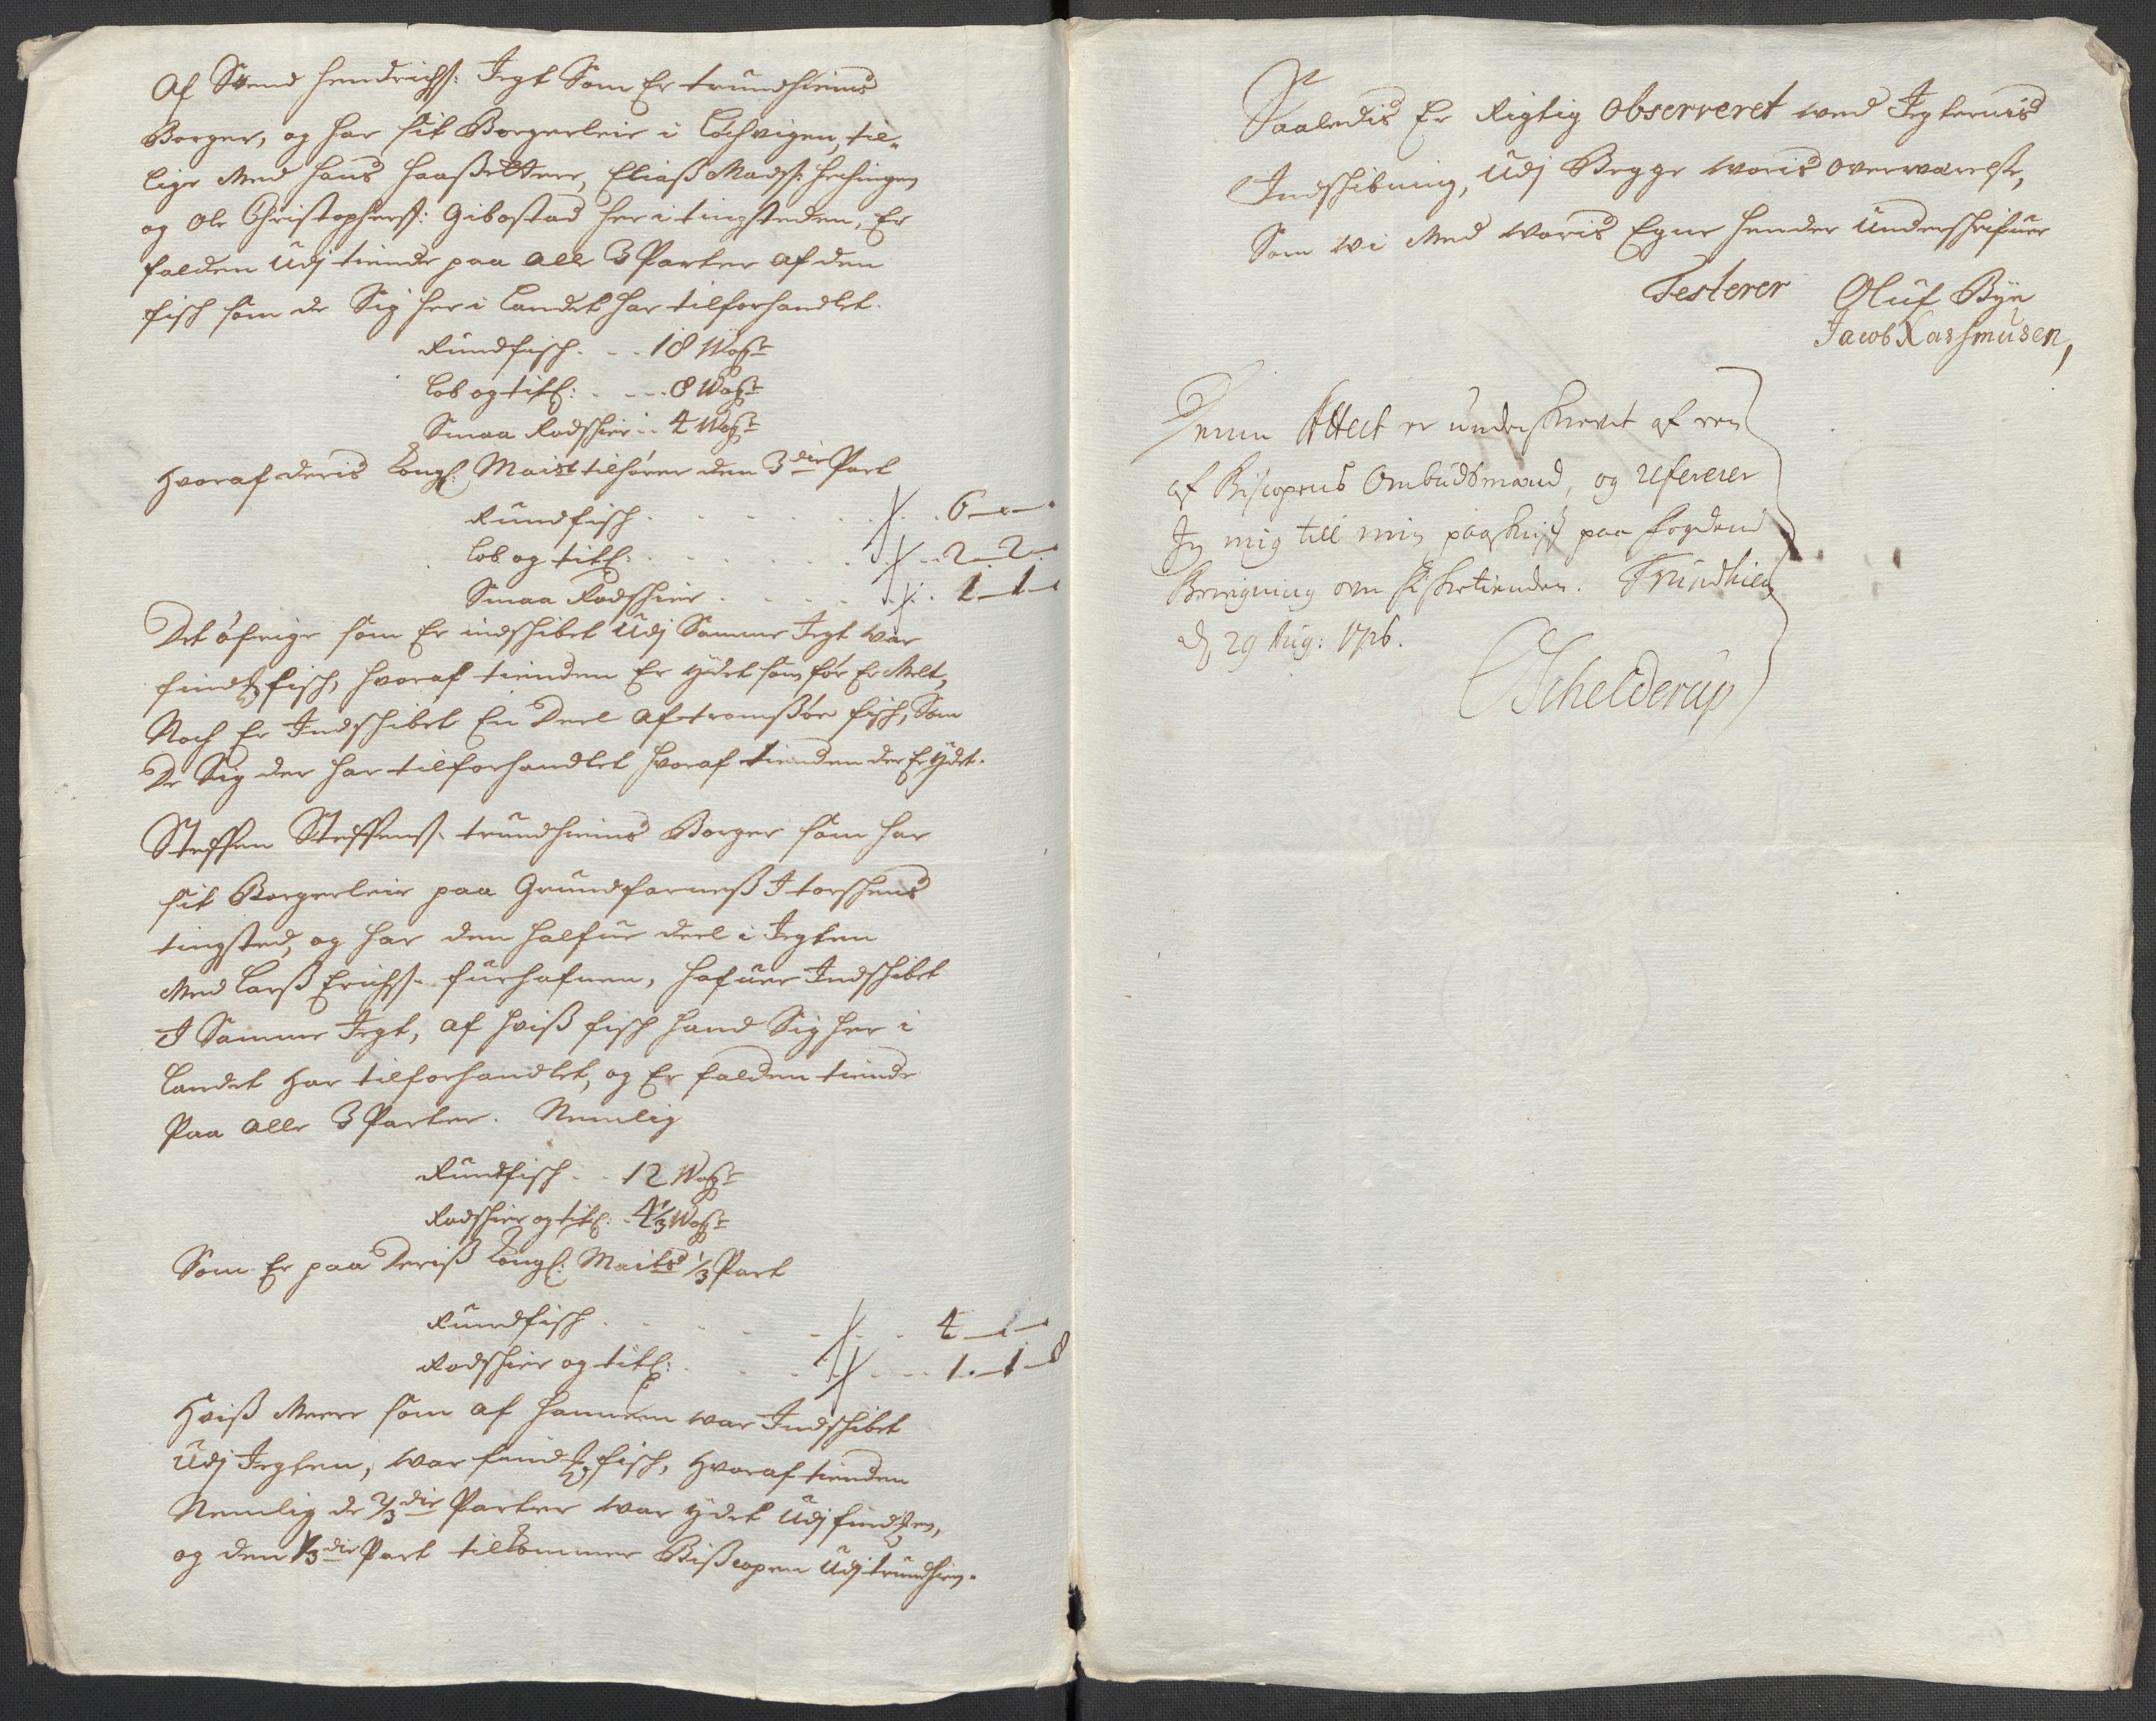 Af Svend Hendrichs: Jegt Som Er trundhiems
Borger, og har sit Borgerleie i Lochvigen, til-
lige Med hans Haaßetter, Eliaß Mads:
og Ole Christophers: Gibostad her i tingsteden, Er
falden Udj tiende paa alle 3 Parter af den
fisch som de Sig her i Landet har tilforhandlet.
Rundfisch . . . 18 Woger
Lob og titl: . . . . 8 Woger
Smaa Rodschier . . 4 Woger
Hvoraf deris Kongl: Maist tilhører den 3die Part
Rundfisch . . . 6 — —
Lob og titl: . . . 2 — 2 —
Smaa Rodschier . . . 1 — 1 —
Det øfrige som Er indschibet Udj Samme Jegt war
find: fisch, hvoraf tienden Er ydet som før Er Melt,
Noch Er Indschibet En Deel af tromßøe fisch, Som
De Sig der har tilforhandlet hvoraf tienden der Er ydet.
Steffen Steffens: trundhiems Borger som har
sit Borgerleie paa Grundfarneß I torschens
tingsted, og har den halfue deel i Jegten
Med Larß Erichs: furhafnen, hafuer Indschibet
I Samme Jegt, af hviß fisch hand Sig her i
Landet har tilforhandlet, og Er falden tiende
Paa alle 3 Parter. Nemlig
Rundfisch . . 12 Woger
Rodschier og titl: . 4 1/3 Woger
Som Er paa Deriß Kongl: Maits 1/3 Part
Rundfisch . . . 4 — —
Rodschier og titl: . . . 1 — 1 — 8
Hviß Meere som af hannem war Indschibet
Udj Jegten, war find: fisch, hvoraf tienden
Nemlig de 2/3die Parter war ydet Udj
og den 1/3die Part tilkommer Bißcopen Udj trundhiem.
Saaledis Er Rigtig Observeret wed Jegternis
Indschibning, Udj Begge woris overwærelse,
Som wi Med woris Egne hender Underschrifuer
Testerer Oluf Bye
Jacob Rasmusen,
Denne Attest er underskrevet af een
af Biscopens Ombudsmænd, og refererer
Jeg mig till min paaskrift paa fogdens
Beregning om fisketienden. Trundhiem
d 29 Aug: 1716.
Schelderup